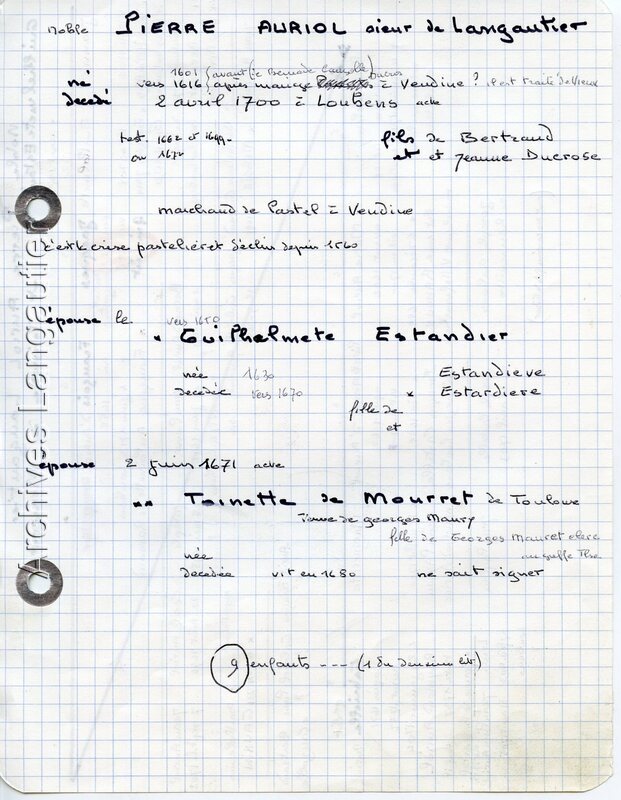 noble PIERRE AURIOL sieur de Langautier
1601 (avant
né vers 1616 après mariage à Vendine ? il est traité de vieux
decedé 2 avril 1700 à Loubens acte
test. 1662 et 1699
ou 1672
fils de Bertrand
et et Jeanne Ducrose
marchand de Pastel à Vendine
c'est la crise pastelière et déclin depuis 1560
épouse le vers 1650
* Guilhelmete Estandier
née 1630 Estandieve
decedée vers 1670 * Estardiere
fille de
et
épouse 2 juin 1671 acte
** Toinette de Mourret de Toulouse
veuve de georges Maury
fille de Georges Mauret clerc
au greffe Tlse
née
decedée vit en 1680 ne sait signer
9 enfants --- (1 du deuxième lit)
Archives Langautier